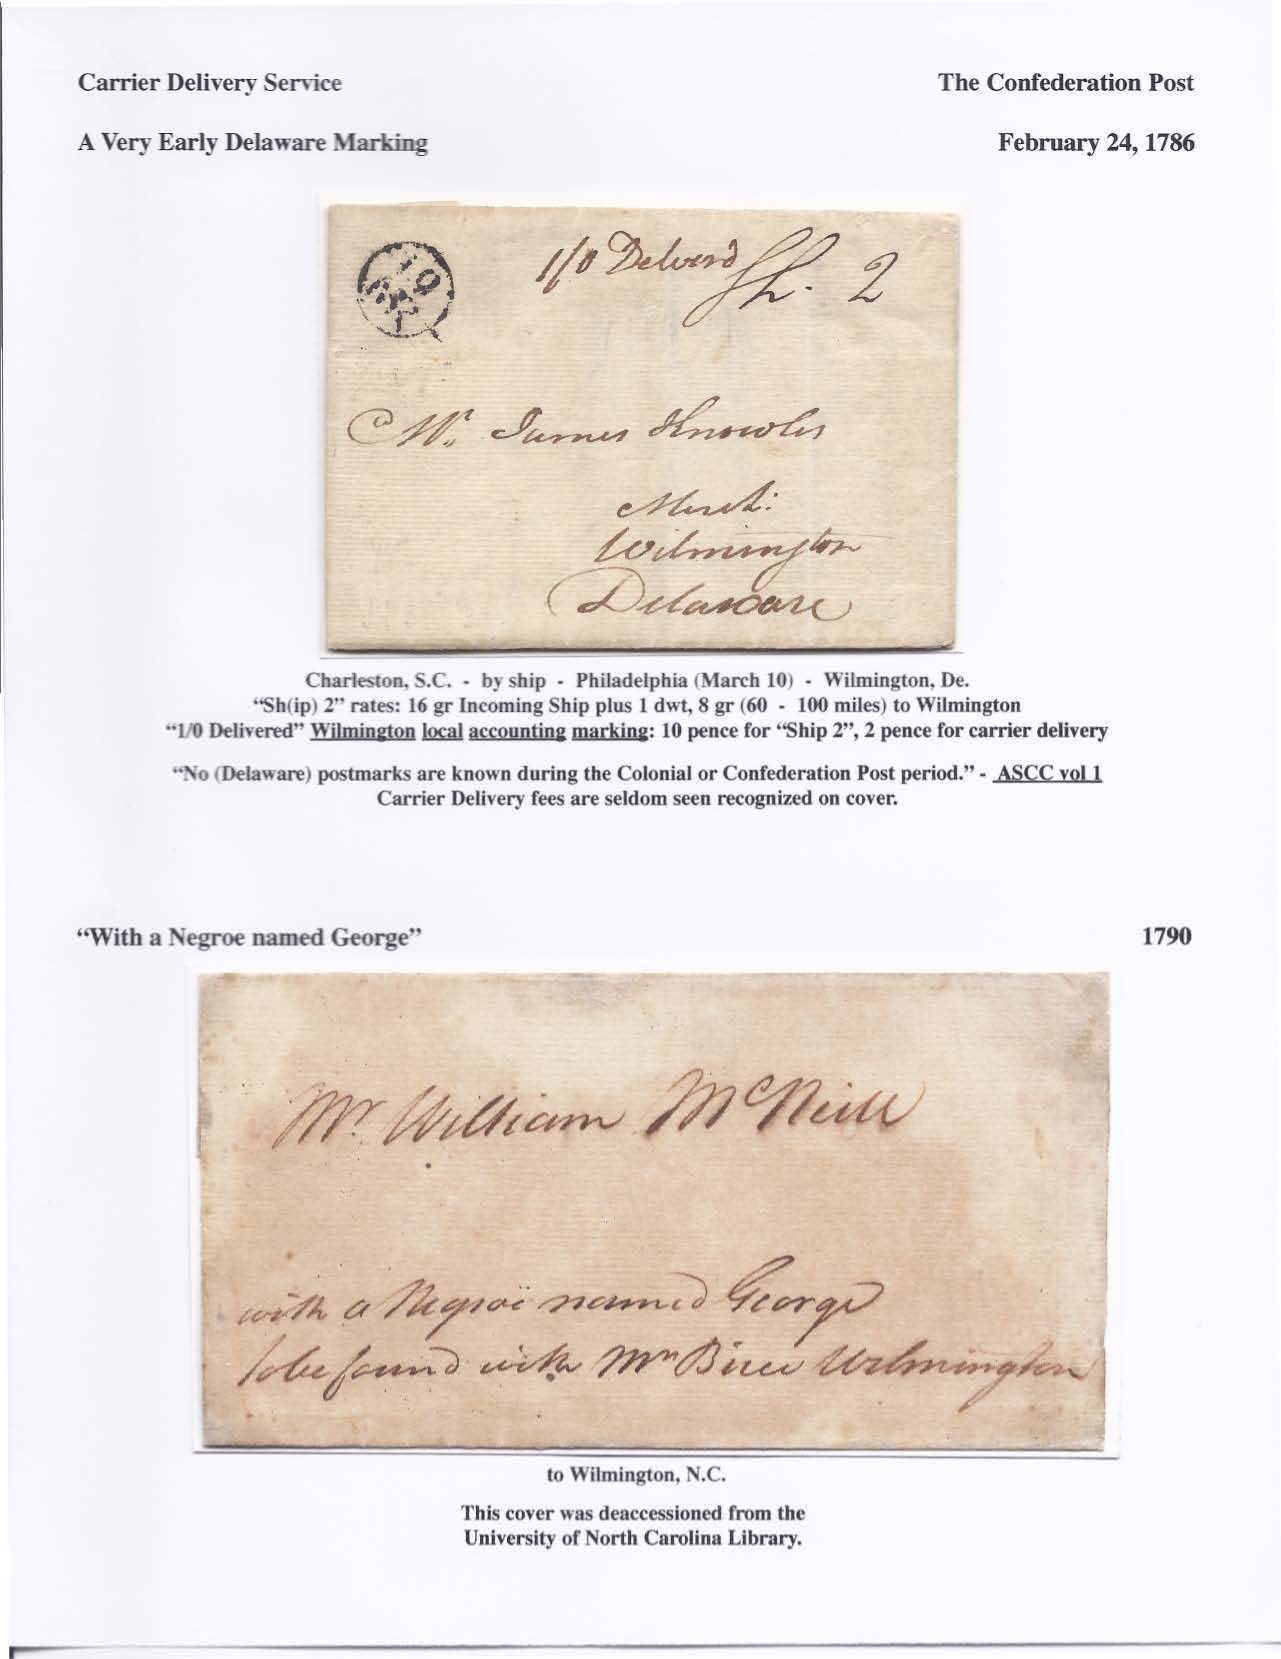 Carrier Delivery Service
The Confederation Post
A Very Early Delaware Marking
February 24, 1786
10
1/0 Deliverd Sh. 2
Mr. James Knowles
Mercht:
Wilmington
Delaware
Charleston, S.C. - by ship - Philadelphia (March 10) - Wilmington, De.
“Sh(ip) 2” rates: 16 gr Incoming Ship plus 1 dwt, 8 gr (60 - 100 miles) to Wilmington
“1/0 Delivered” Wilmington local accounting marking: 10 pence for “Ship 2”, 2 pence for carrier delivery
“No (Delaware) postmarks are known during the Colonial or Confederation Post period.” - ASCC vol 1
Carrier Delivery fees are seldom seen recognized on cover.
“With a Negroe named George”
1790
Mr. William McNeill
with a Negroe named George
to be found with Mrs Wilmington
to Wilmington, N.C.
This cover was deaccessioned from the
University of North Carolina Library.